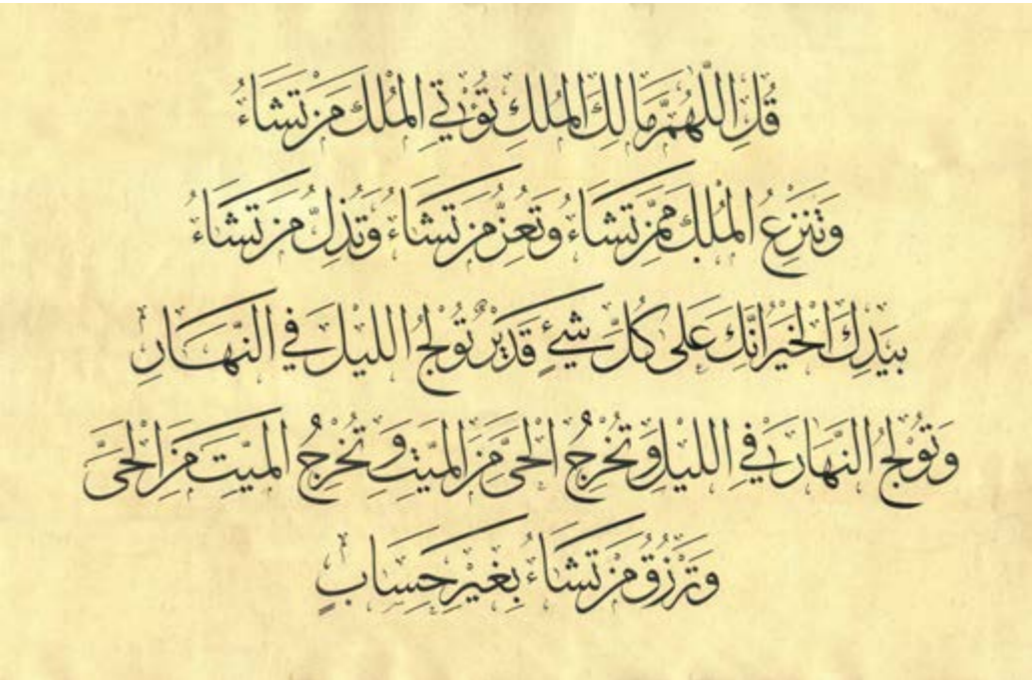 قُلِ اللَّهُمَّ مَالِكَ الْمُلْكِ تُؤْتِي الْمُلْكَ مَنْ تَشَاءُ
وَتَنْزِعُ الْمُلْكَ مِمَّنْ تَشَاءُ وَتُعِزُّ مَنْ تَشَاءُ وَتُذِلُّ مَنْ تَشَاءُ
بِيَدِكَ الْخَيْرُ اِنَّكَ عَلَى كُلِّ شَيْءٍ قَدِيرٌ تُولِجُ اللَّيْلَ فِي النَّهَارِ
وَتُولِجُ النَّهَارَ فِي اللَّيْلِ وَتُخْرِجُ الْحَيَّ مِنَ الْمَيِّتِ وَتُخْرِجُ الْمَيِّتَ مِنَ الْحَيِّ
وَتَرْزُقُ مَنْ تَشَاءُ بِغَيْرِ حِسَابٍ